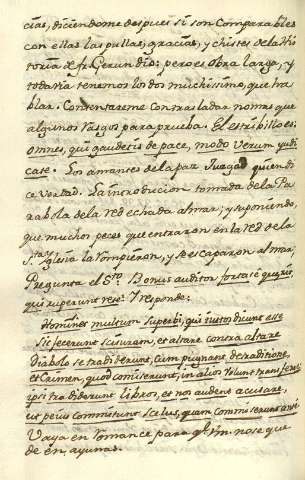 cias, diciendome despues si son comparables
con ellas las pullas, gracias, y chistes de la His
toria de fr. Gerundio: pero es obra larga, y
todavia tenemos los dos muchissimo, que ha
blar. Contentareme con trasladar no mas que
algunos rasgos para prueba. El estribillo es:
omnes, qui gaudetis de pace, modo verum judi
cate. Los amantes de la paz Juzgad quien ti
ce verdad. La introduccion tomada de la Pa
rabola de la red echada al mar; y suponiendo,
que muchos peces que entraron en la red de la
Sta. Iglesia la rompieron, y se escaparon al mar,
Pregunta el Sto. Bonus auditor fortasse quaerit,
qui ruperunt rete. Y responde:
Homines multum superbi, qui justos dicunt esse
Sic fecerunt scissuram, et altare contra altare
Diabolo se tradiderunt, cum pugnant de traditione,
et crimen, quod comiserunt, in alios volunt transferre
ipsi tradiderunt libros, et nos audent accusare,
ut pejus committunt scelus, quam commiserunt ante
Vaya en romance para qe Vm. no se que
de en ayunas.